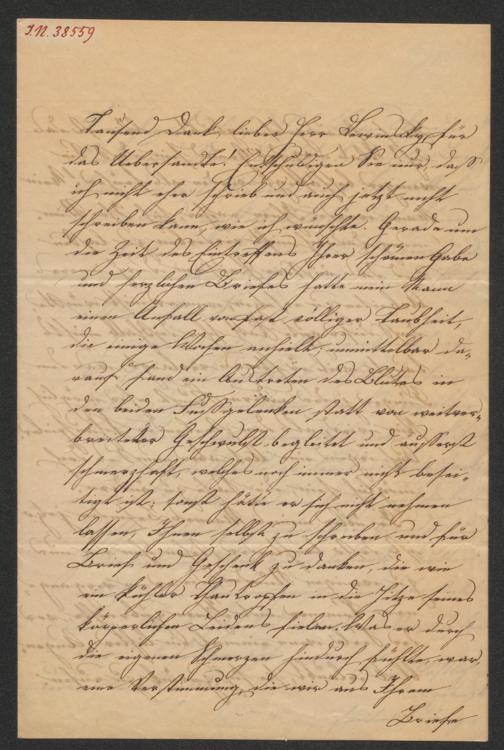 I.N. 38559
Tausend Dank, lieber Herr Lewinsky, für
das Uebersandte! Entschuldigen Sie nur, daß
ich nicht eher schrieb und auch jetzt nicht
schreiben kann, wie ich wünschte. Gerade um
die Zeit des Eintreffens Ihrer schönen Gabe
und herzlichen Briefes hatte mein Mann
einen Anfall von fast völliger Taubheit,
die einige Wochen anhielt, unmittelbar da-
rauf fand ein Austreten des Blutes in
den beiden Fussgelenken statt von weitver-
breiteter Geschwulst begleitet und äusserst
schmerzhaft, welches noch immer nicht besei-
tigt ist; sonst hätte er sich nicht nehmen
lassen, Ihnen selbst zu schreiben und für
Brief und Geschenk zu danken, die wie
ein kühler Thautropfen in die Hitze seines
körperlichen Leidens fielen. Was er durch
die eigenen Schmerzen hindurch fühlte, war
eine Verstimmung, die wir aus Ihrem
Briefe